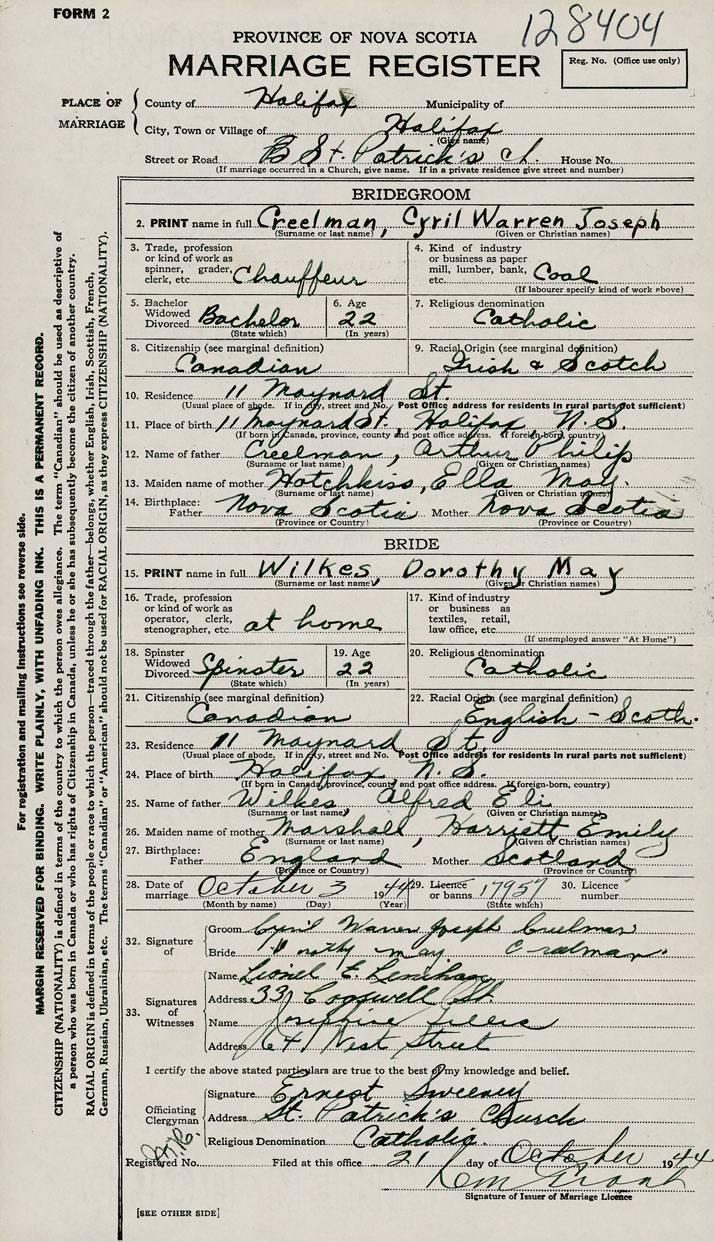 FORM 2
128404
PROVINCE OF NOVA SCOTIA
MARRIAGE REGISTER
Reg. No. (Office use only)
PLACE OF MARRIAGE
County of Halifax Municipality of
City, Town or Village of Halifax
(Give name)
Street or Road B St. Patrick's Ch. House No.
(If marriage occurred in a Church, give name. If in a private residence give street and number)
BRIDEGROOM
2. PRINT name in full Creelman, Cyril Warren Joseph
(Surname or last name) (Given or Christian names)
3. Trade, profession or kind of work as spinner, grader, clerk, etc. Chauffeur
4. Kind of industry or business as paper mill, lumber, bank, etc. Coal
(If labourer specify kind of work above)
5. Bachelor Widowed Divorced Bachelor (State which)
6. Age 22 (In years)
7. Religious denomination Catholic
8. Citizenship (see marginal definition) Canadian
9. Racial Origin (see marginal definition) Irish & Scotch
10. Residence 11 Maynard St.
(Usual place of abode. If in city, street and No. Post Office address for residents in rural parts not sufficient)
11. Place of birth 11 Maynard St., Halifax, N.S.
(If born in Canada, province, county and post office address. If foreign-born, country)
12. Name of father Creelman, Arthur Philip
(Surname or last name) (Given or Christian names)
13. Maiden name of mother Hotchkiss, Ella May.
(Surname or last name) (Given or Christian names)
14. Birthplace: Father Nova Scotia Mother Nova Scotia
(Province or Country) (Province or Country)
BRIDE
15. PRINT name in full Wilkes, Dorothy May
(Surname or last name) (Given or Christian names)
16. Trade, profession or kind of work as operator, clerk, stenographer, etc. at home
17. Kind of industry or business as textiles, retail, law office, etc.
(If unemployed answer "At Home")
18. Spinster Widowed Divorced Spinster (State which)
19. Age 22 (In years)
20. Religious denomination Catholic
21. Citizenship (see marginal definition) Canadian
22. Racial Origin (see marginal definition) English - Scoth.
23. Residence 11 Maynard St.
(Usual place of abode. If in city, street and No. Post Office address for residents in rural parts not sufficient)
24. Place of birth Halifax, N.S.
(If born in Canada, province, county and post office address. If foreign-born, country)
25. Name of father Wilkes, Alfred Eli
(Surname or last name) (Given or Christian names)
26. Maiden name of mother Marshall, Harriett Emily
(Surname or last name) (Given or Christian names)
27. Birthplace: Father England Mother Scotland
(Province or Country) (Province or Country)
28. Date of marriage October 3 1944
(Month by name) (Day) (Year)
29. Licence or banns 17957 (State which)
30. Licence number
32. Signature of
Groom Cyril Warren Joseph Creelman
Bride Dorothy May Creelman
33. Signatures of Witnesses
Name Lionel E. Lenihan
Address 331 Cogswell St
Name Josephine
Address 641 West Street
I certify the above stated particulars are true to the best of my knowledge and belief.
Officiating Clergyman
Signature Ernest Sweeney
Address St. Patrick's Church
Religious Denomination Catholic.
Registered No. Filed at this office 21 day of October 1944
Signature of Issuer of Marriage Licence
[SEE OTHER SIDE]
For registration and mailing instructions see reverse side.
MARGIN RESERVED FOR BINDING. WRITE PLAINLY, WITH UNFADING INK. THIS IS A PERMANENT RECORD.
CITIZENSHIP (NATIONALITY) is defined in terms of the country to which the person owes allegiance. The term "Canadian" should be used as descriptive of
a person who was born in Canada or who has rights of Citizenship in Canada, unless he or she has subsequently become the citizen of another country.
RACIAL ORIGIN is defined in terms of the people or race to which the person—traced through the father—belongs, whether English, Irish, Scottish, French,
German, Russian, Ukrainian, etc. The terms "Canadian" or "American" should not be used for RACIAL ORIGIN, as they express CITIZENSHIP (NATIONALITY).